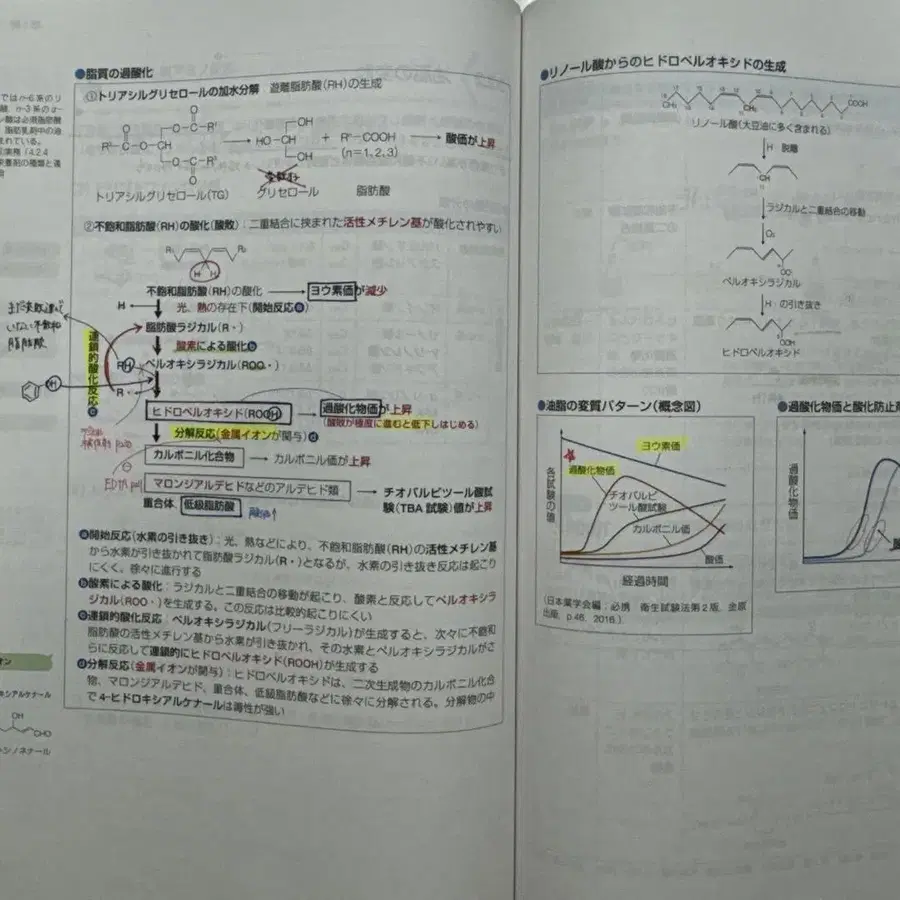 では n-6 系のリ
酸、n-3 系のα-
ン酸は必須脂肪酸
脂肪乳剤中の油
まれている。
●脂質の過酸化
①トリアシルグリセロールの加水分解 遊離脂肪酸(RH)の生成
O
O O-C-R¹ OH
R²-C-O-CH → HO-CH + Rⁿ-COOH → 酸価が上昇
O-C-R³ OH (n=1, 2, 3)
O
トリアシルグリセロール(TG) グリセロール 脂肪酸
②不飽和脂肪酸(RH)の酸化(酸敗):二重結合に挟まれた活性メチレン基が酸化されやすい
R₁ R₂
H H
不飽和脂肪酸(RH)の酸化 → ヨウ素価が減少
H ← 光、熱の存在下(開始反応ⓐ)
脂肪酸ラジカル(R・)
酸素による酸化ⓑ
ペルオキシラジカル(ROO・)
RH
R・
連鎖的酸化反応ⓒ
ヒドロペルオキシド(ROOH) → 過酸化物価が上昇
(酸敗が極度に進むと低下しはじめる)
分解反応(金属イオンが関与)ⓓ
カルボニル化合物 → カルボニル価が上昇
マロンジアルデヒドなどのアルデヒド類 → チオバルビツール酸試
験(TBA 試験)値が上昇
重合体、低級脂肪酸 酸価↑
ⓐ開始反応(水素の引き抜き):光、熱などにより、不飽和脂肪酸(RH)の活性メチレン基
から水素が引き抜かれて脂肪酸ラジカル(R・)となるが、水素の引き抜き反応は起こり
にくく、徐々に進行する
ⓑ酸素による酸化:ラジカルと二重結合の移動が起こり、酸素と反応してペルオキシラ
ジカル(ROO・)を生成する。この反応は比較的起こりにくい
ⓒ連鎖的酸化反応:ペルオキシラジカル(フリーラジカル)が生成すると、次々に不飽和
脂肪酸の活性メチレン基から水素が引き抜かれ、その水素とペルオキシラジカルがさ
らに反応して連鎖的にヒドロペルオキシド(ROOH)が生成する
ⓓ分解反応(金属イオンが関与):ヒドロペルオキシドは、二次生成物のカルボニル化合
物、マロンジアルデヒド、重合体、低級脂肪酸などに徐々に分解される。分解物の中
で 4-ヒドロキシアルケナールは毒性が強い
キシアルケナール
OH
CHO
シノネナール
●リノール酸からのヒドロペルオキシドの生成
CH₃ CH₂ COOH
リノール酸(大豆油に多く含まれる)
H・脱離
CH
ラジカルと二重結合の移動
O₂
OO・
ペルオキシラジカル
H・の引き抜き
OOH
ヒドロペルオキシド
●油脂の変質パターン(概念図)
各試験の値
ヨウ素価
過酸化物価
チオバルビ
ツール酸試験
カルボニル価
酸価
経過時間
(日本薬学会編:必携 衛生試験法第2版、金原
出版、p.46、2016.)
●過酸化物価と酸化防止剤
過酸化物価